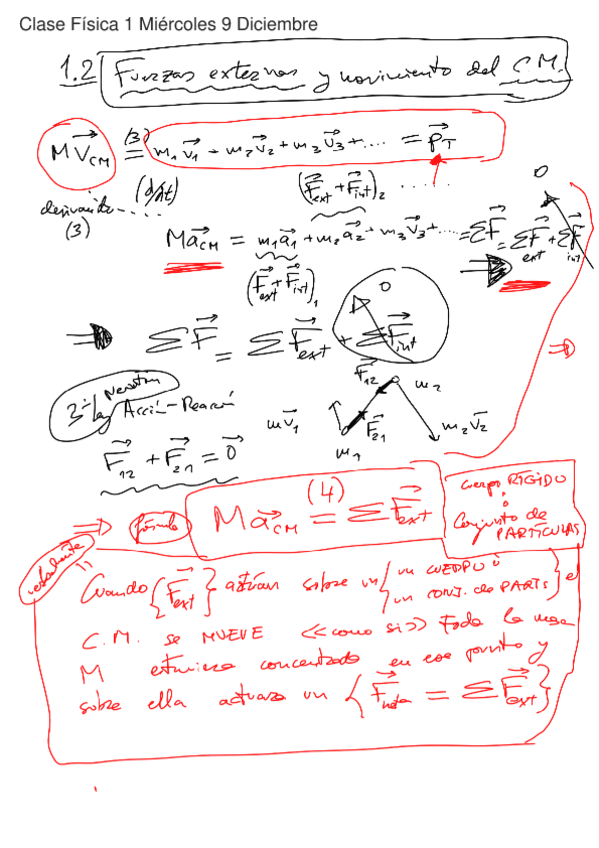 Clase Física 1 Miércoles 9 Diciembre
1.2 Fuerzas externas y movimiento del C.M.
MV⃗_CM =(3) m₁v⃗₁ + m₂v⃗₂ + m₃v⃗₃ + .... = p⃗_T
derivando.... (3) (d/dt) (F⃗_ext + F⃗_int)₂ .....
Ma⃗_CM = m₁a⃗₁ + m₂a⃗₂ + m₃v⃗₃ + .... = ΣF⃗ = ΣF⃗_ext + ΣF⃗_int 0
(F⃗_ext + F⃗_int)₁
⇒ ΣF⃗ = ΣF⃗_ext + ΣF⃗_int 0
3ª Ley Newton
Acción-Reacción
mv⃗₁ F⃗₁₂ F⃗₂₁ m₁ m₂ m₂v⃗₂
F⃗₁₂ + F⃗₂₁ = 0⃗
⇒ fórmula Ma⃗_CM =(4) ΣF⃗_ext
cuerpo RÍGIDO
ó
Conjunto de
PARTÍCULAS
Cuando {F⃗_ext} actúan sobre un {un CUERPO ó un CONJ. de PARTs} el
C.M. se MUEVE <<como si>> toda la masa
M estuviera concentrada en ese punto y
sobre ella actuara un {F⃗_neta = ΣF⃗_ext}